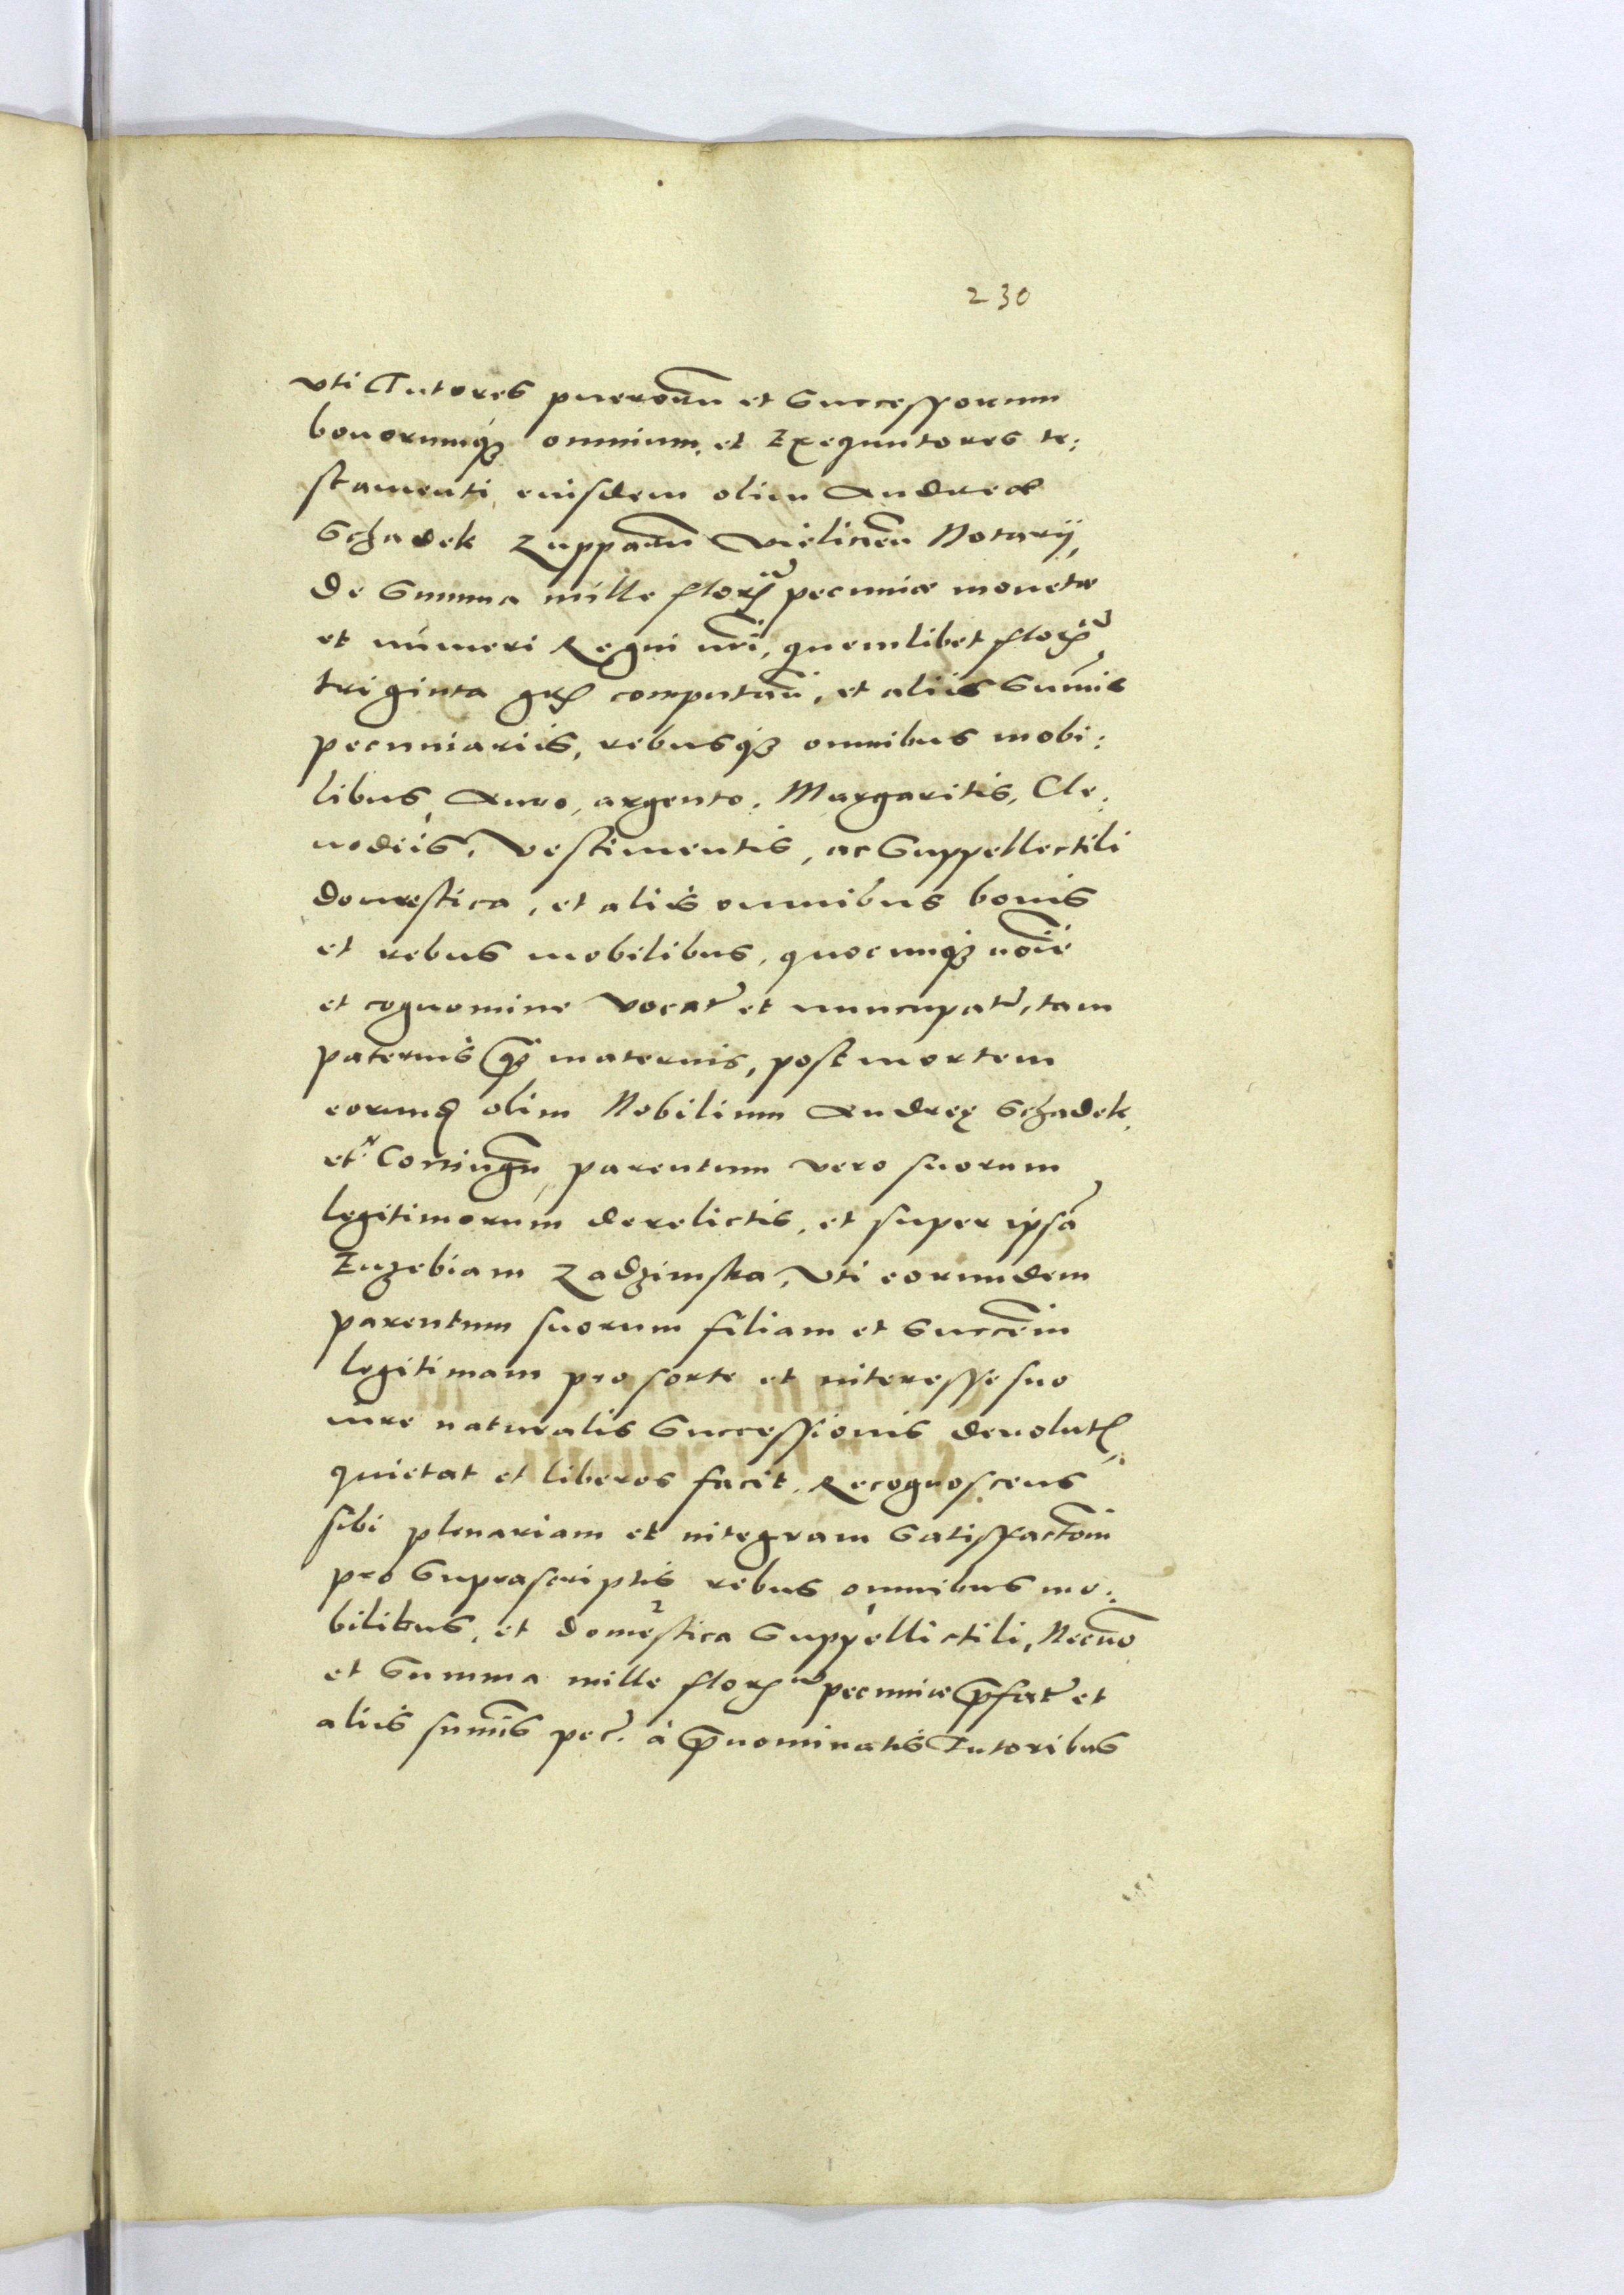 230
vti Tutores pueroru͂ et Successorum
bonorumq́ꝫ omnium, et Exequutores te:
stamenti eiusdem olim Andreæ
Schadek Zupparu͂ Vielicen̄ Notarij,
de Summa mille flor̃ pecuniæ monetæ
et númeri Regni nr̃i, quemlibet flor̃
triginta gr̃ computan̄, et aliis Sum̄is
pecuniariis, rebusq́ꝫ omnibus mobi:
libus, Auro, argento, Margaritis, Cle:
nodiis, Vestimentis, ac Suppellectili
domestica, et aliis omnibus bonis
et rebus mobilibus, quocunq́ꝫ noīe
et cognomine vocat̃ et nuncupat̃, tam
paternis q̃ꝫ maternis, post mortem
eorund̃ olim Nobilium Andreę Schadek,
et Coniugu͂, parentum vero suorum
legitimorum derelictis, et super ipsã
Euzebiam Zadzimska, vti eorundem
parentum suorum filiam et Succ̄em
legitimam pro sorte et interesse suo
iure naturalis Successionis deuolut̃,
quietat et liberos facit, Recognoscens
sibi plenariam et integram Satisfactōm
pro Suprascriptis rebus omnibus mo:
bilibus, et domestica Suppellictili, Necnō
et Summa mille flor̃ pecuniæ p̃fat̃ et
aliis sum̄is pec̃. à p̃nominatis Tutoribus